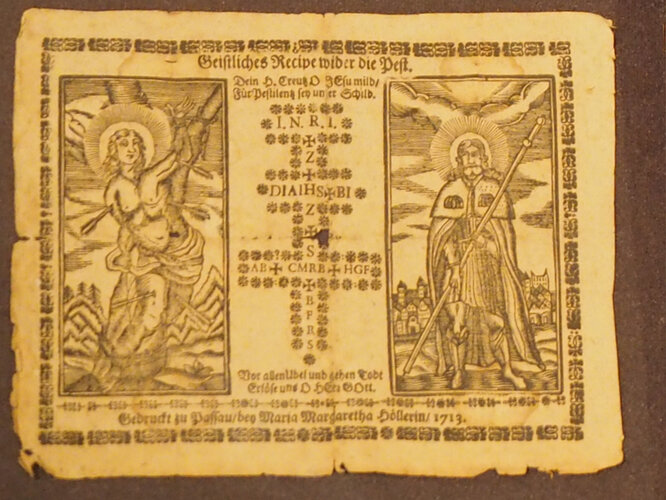 Geistliches Recipe wider die Pest.
Dein H. Creutz O JEsu mild/
Für Pestilentz sey unser Schild.
I. N. R. I.
✠
Z
✠
DIAIHS✠BI
✠
Z
✠
S
AB✠CMRB✠HGF
✠
B
F
R
S
Vor allen Ubel und gehen Todt
Erlöse uns O HErr GOtt.
Gedruckt zu Passau/bey Maria Margaretha Höllerin/1713.